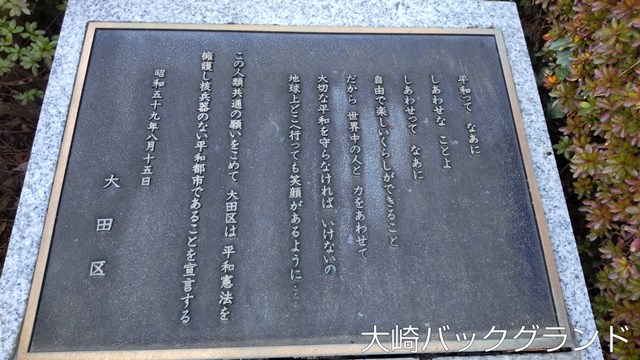 平和って なあに
しあわせな ことよ
しあわせって なあに
自由で楽しいくらしができること
だから 世界中の人と 力をあわせて
大切な平和を守らなければ いけないの
地球上どこへ行っても笑顔があるように‥‥
この人類共通の願いをこめて 大田区は 平和憲法を
擁護し核兵器のない平和都市であることを宣言する
昭和五十九年八月十五日
大田区
大崎バックグランド